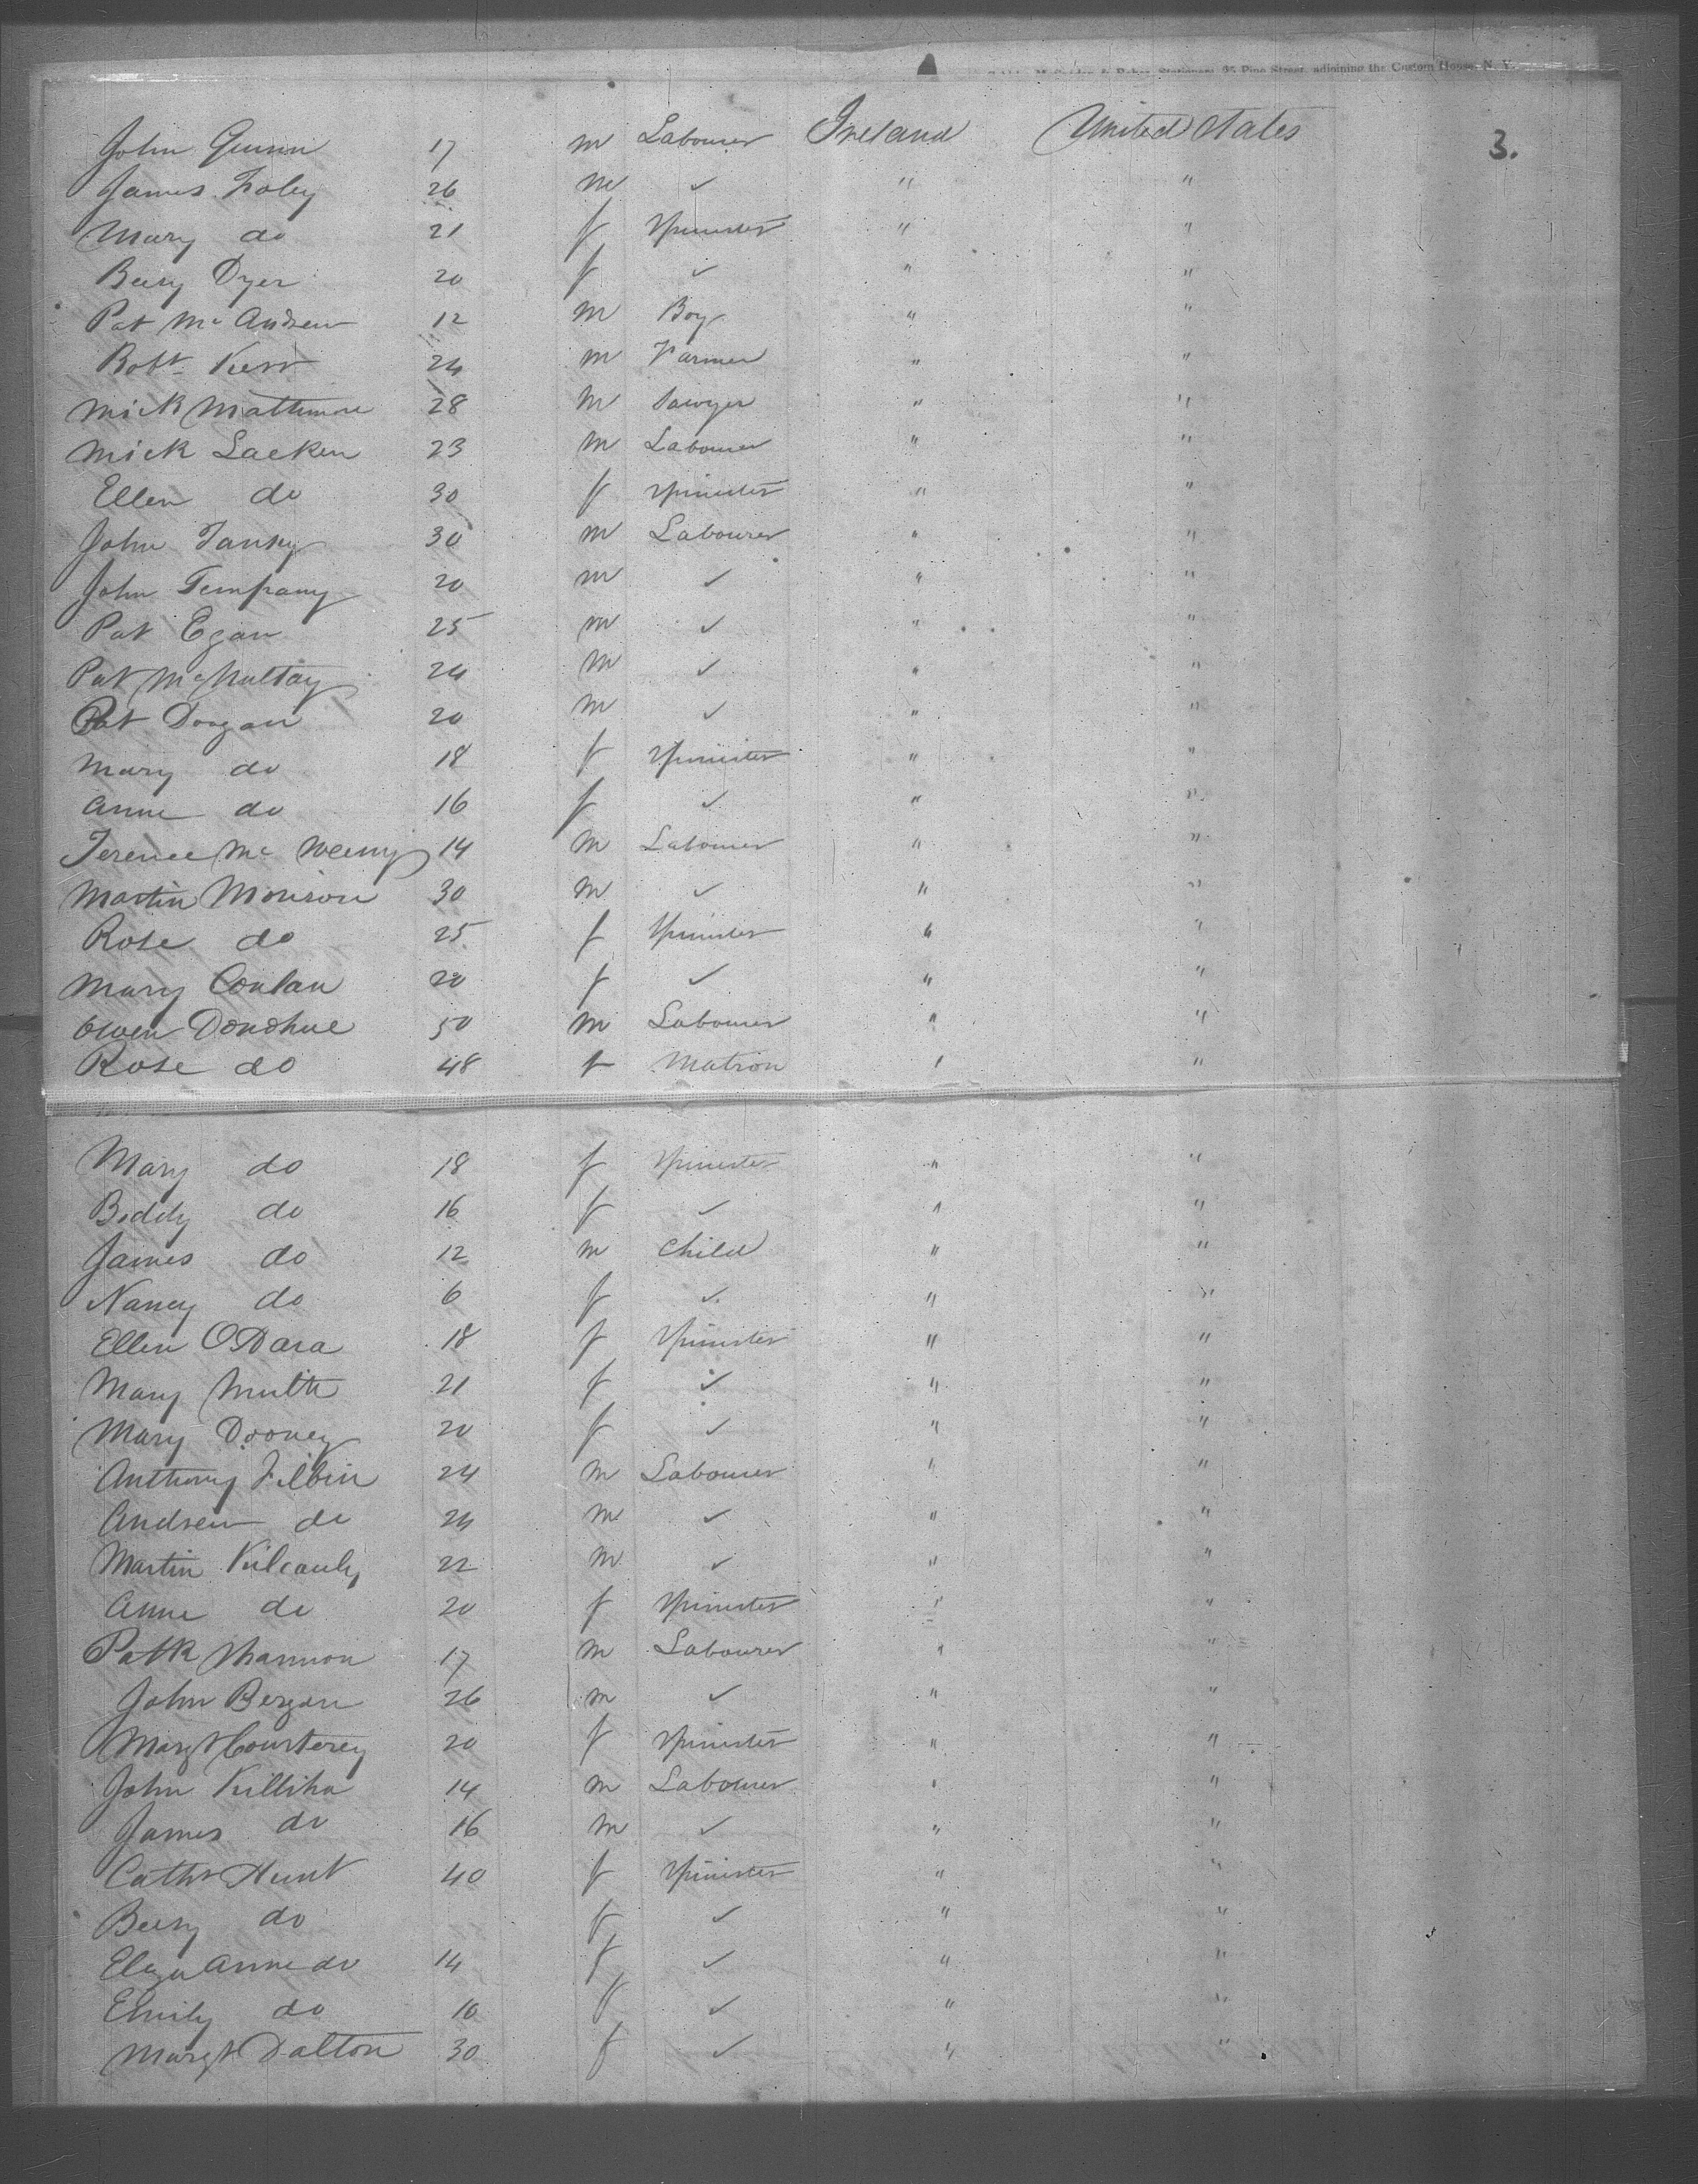 95 Pine Street, adjoining the Custom House, N. Y.
3.
John Quinn 17 m Labourer Ireland United States
James Foley 26 m ✓ " "
Mary do 21 f Spinster " "
Beesy Dyer 20 f ✓ " "
Pat McAndrew 12 m Boy " "
Robt Kerr 24 m Farmer " "
Mick Mattimore 28 m Sawyer " "
Mick Lacken 23 m Labourer " "
Ellen do 30 f Spinster " "
John Tansy 30 m Labourer " "
John Tempany 20 m ✓ " "
Pat Egan 25 m ✓ " "
Pat McNultay 24 m ✓ " "
Pat Doogan 20 m ✓ " "
Mary do 18 f Spinster " "
Anne do 16 f ✓ " "
Terence Mc Weeny 14 m Labourer " "
Martin Morison 30 m ✓ " "
Rose do 25 f Spinster " "
Mary Conlan 20 f ✓ " "
Owen Donohue 50 m Labourer " "
Rose do 48 f Matron " "
Mary do 18 f Spinster " "
Biddy do 16 f ✓ " "
James do 12 m Child " "
Nancy do 6 f ✓ " "
Ellen O'Dara 18 f Spinster " "
Mary 21 f ✓ " "
Mary Dooney 20 f ✓ " "
Anthony Filbin 24 m Labourer " "
Andrew do 24 m ✓ " "
Martin Kilcauly 22 m ✓ " "
Anne do 20 f Spinster " "
Patk Shannon 17 m Labourer " "
John Bergan 26 m ✓ " "
Margt Courterey 20 f Spinster " "
John Killiha 14 m Labourer " "
James do 16 m ✓ " "
Cathr Hunt 40 f Spinster " "
Beesy do f ✓ " "
Eliza Anne do 14 f ✓ " "
Emily do 10 f ✓ " "
Margt Dalton 30 f ✓ " "